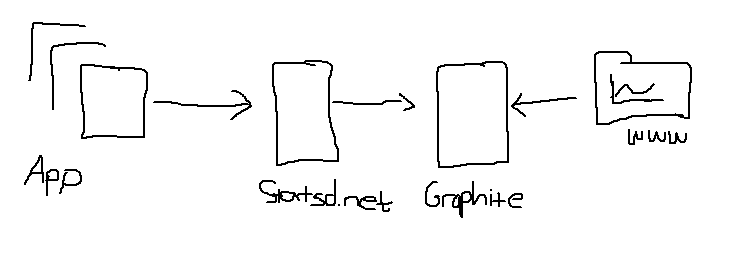 App
Statsd.net
Graphite
www